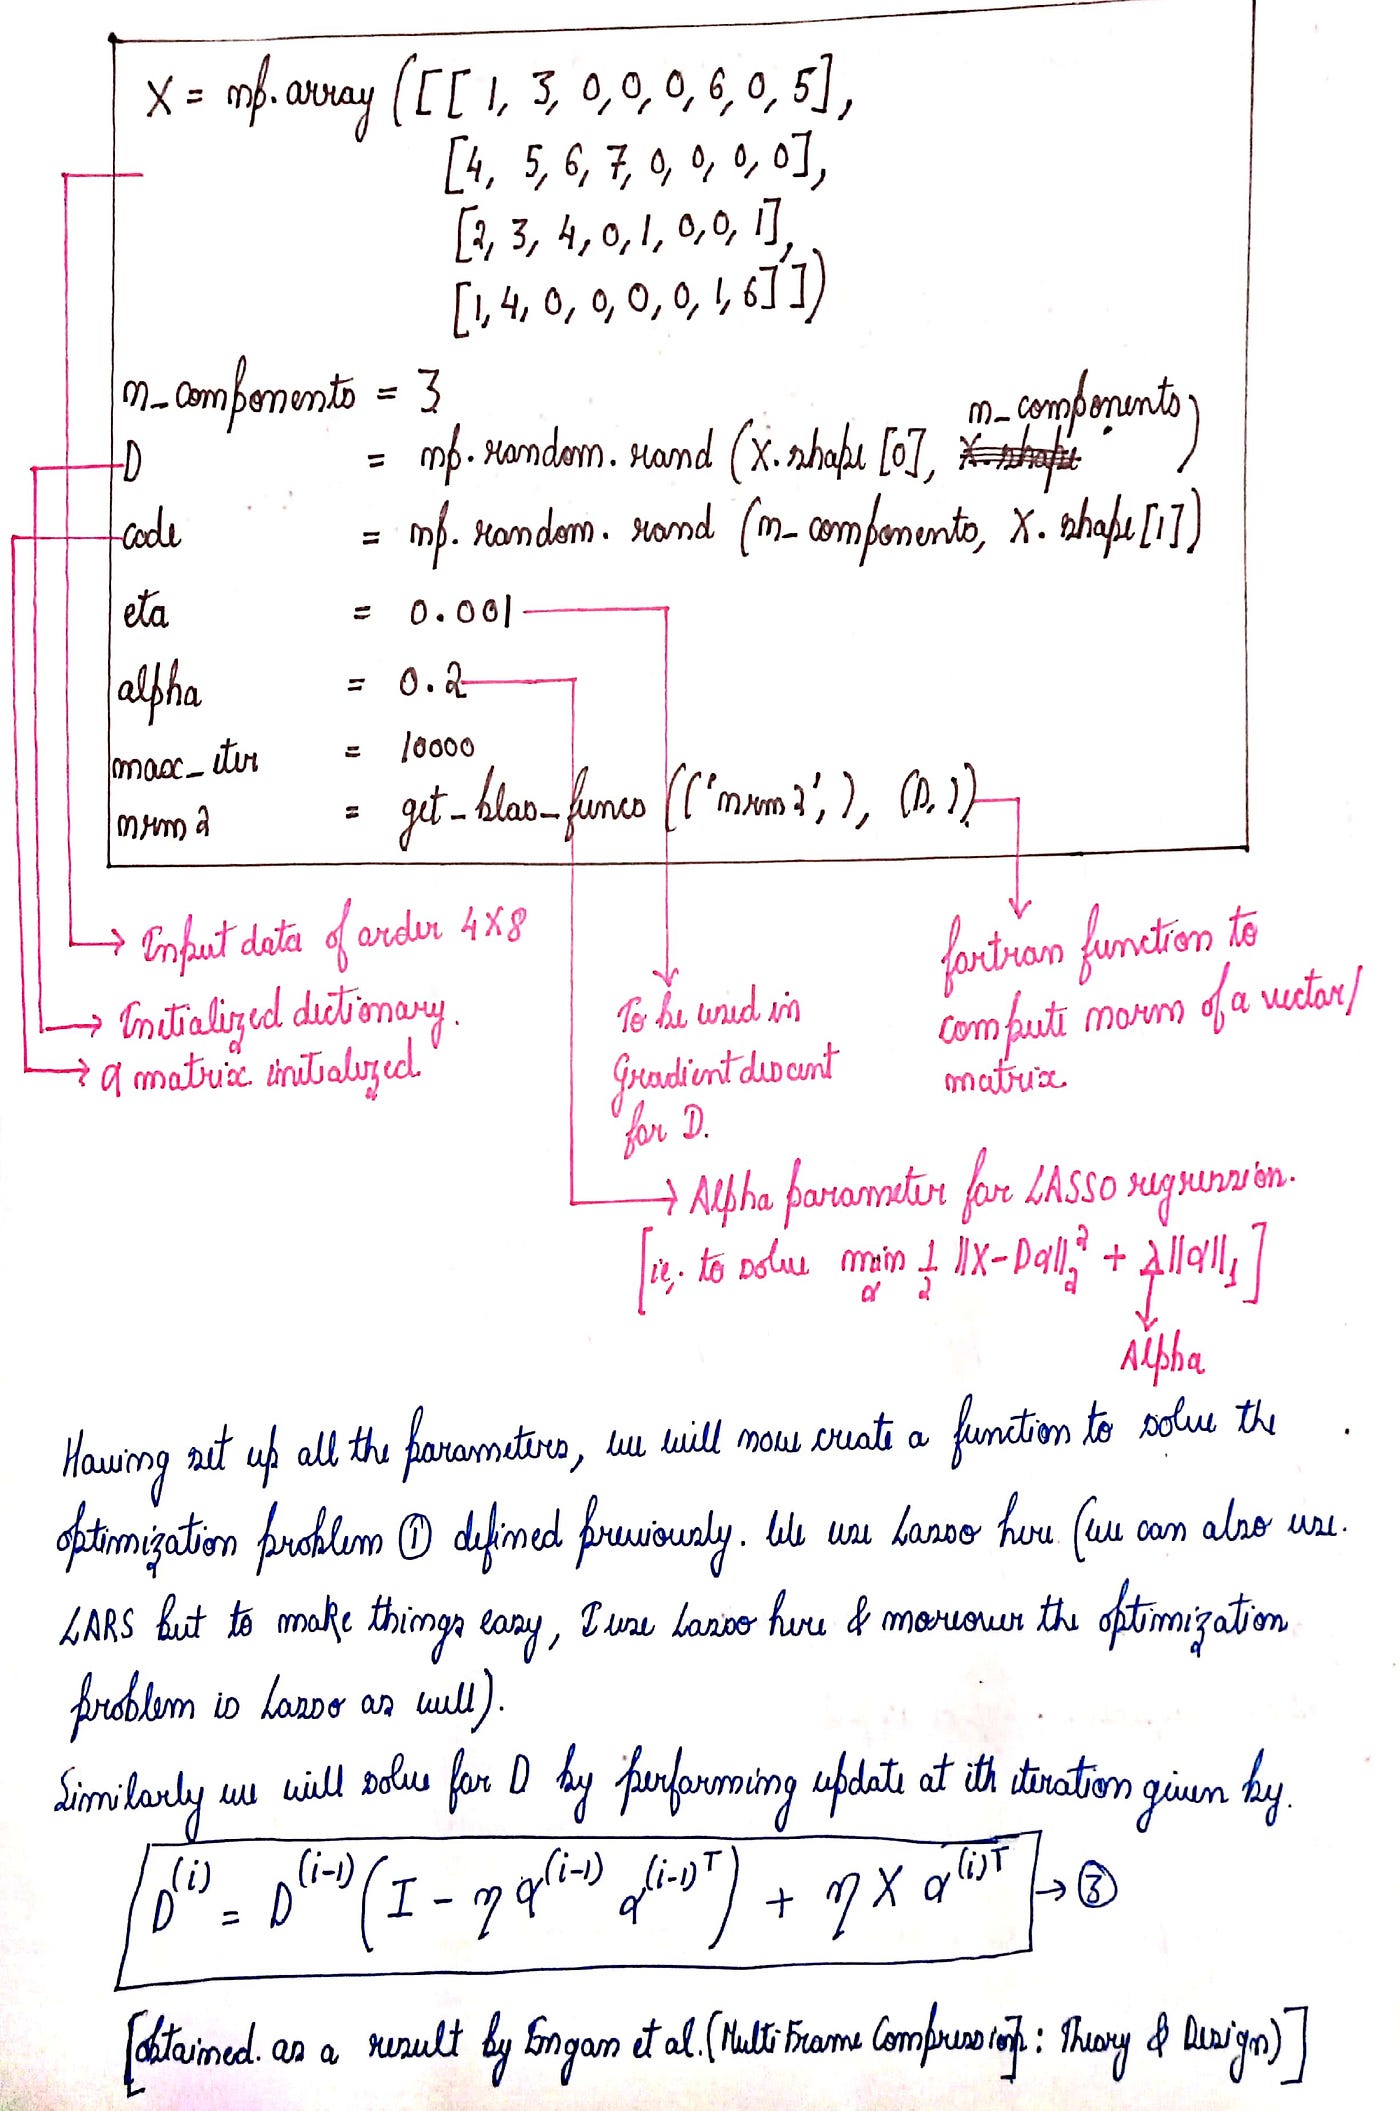 X = np.array ([[ 1, 3, 0, 0, 0, 6, 0, 5],
[4, 5, 6, 7, 0, 0, 0, 0],
[2, 3, 4, 0, 1, 0, 0, 1],
[1, 4, 0, 0, 0, 0, 1, 6]])
n_components = 3
n_components)
D = np.random.rand (X.shape [0], X.shape
code = np.random.rand (n_components, X.shape [1])
eta = 0.001
alpha = 0.2
max_iter = 10000
nrm2 = get_blas_funcs (('nrm2',), (D,))
Input data of order 4X8
Initialized dictionary.
α matrix initialized.
To be used in
Gradient descent
for D.
fortran function to
compute norm of a vector/
matrix
Alpha parameter for LASSO regression.
[ie; to solve min α 1/2 ||X-Dα||₂² + λ||α||₁]
Alpha
Having set up all the parameters, we will now create a function to solve the
optimization problem ① defined previously. We use Lasso here (we can also use
LARS but to make things easy, I use Lasso here & moreover the optimization
problem is Lasso as well).
Similarly we will solve for D by performing update at ith iteration given by.
D^(i) = D^(i-1) (I - η α^(i-1) α^(i-1)T) + η X α^(i)T → ③
[obtained as a result by Engan et al. (Multi Frame Compression]: Theory & Design)]